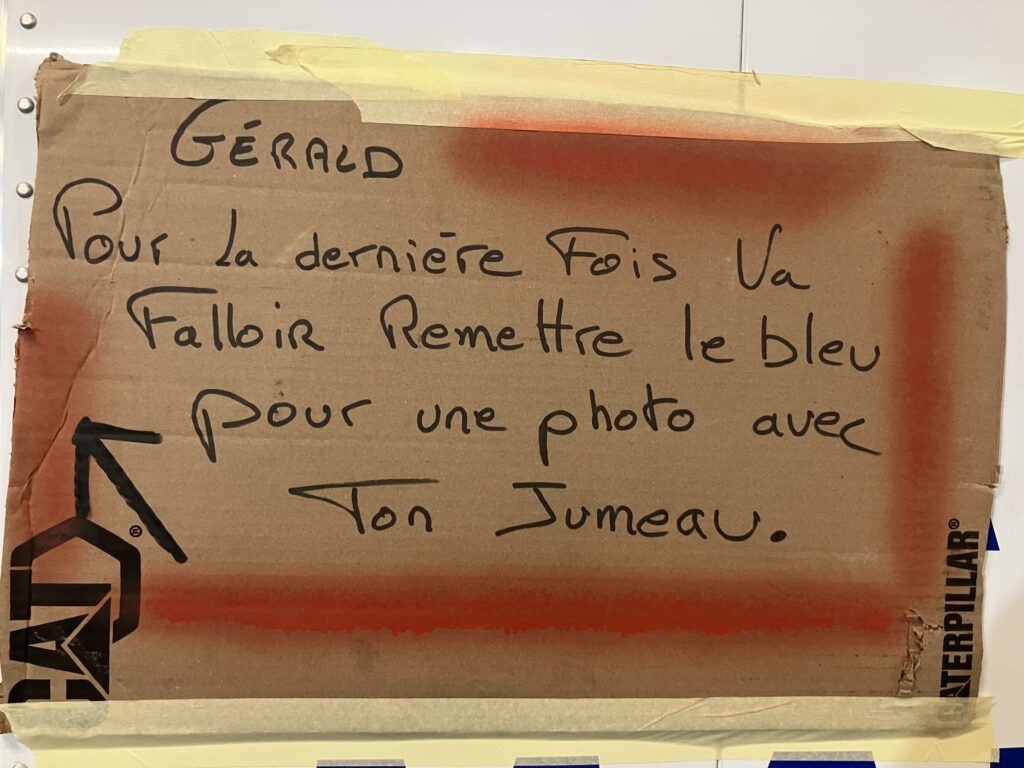 GÉRALD
Pour La dernière Fois Va
Falloir Remettre le bleu
pour une photo avec
Ton Jumeau.
CAT
®
CATERPILLAR®